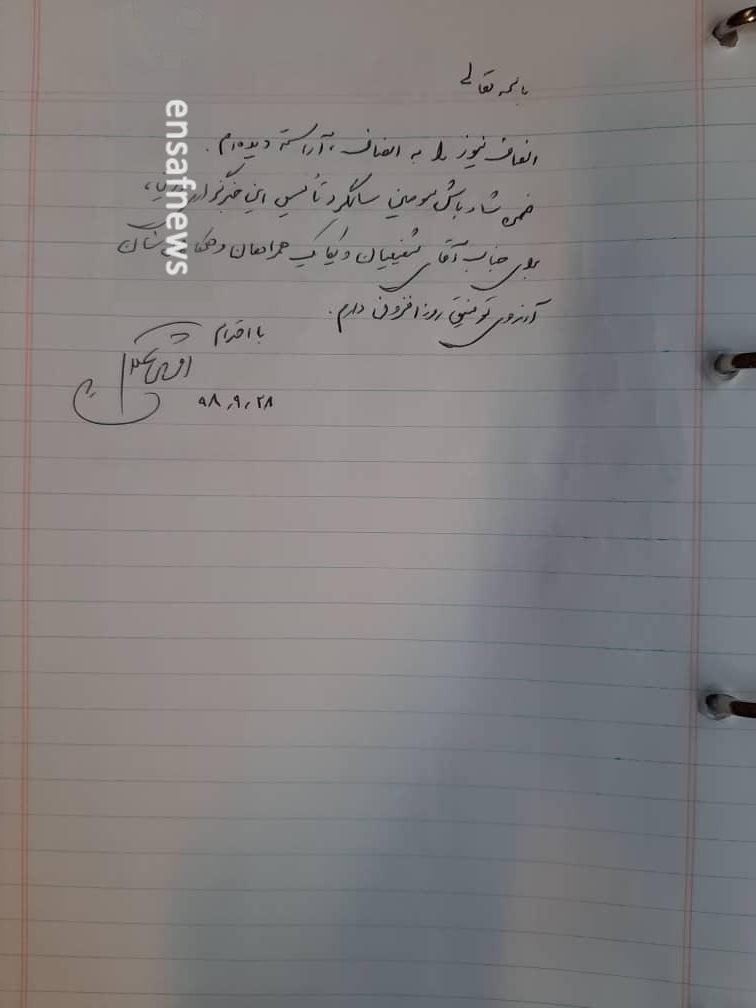 باسمه تعالی
انصاف نیوز را به انصاف، آراسته دیده‌ام.
ضمن شادباش سومین سالگرد تأسیس این خبرگزاری
برای جناب آقای شفیعیان و یکایک همراهان و
آرزوی توفیق روزافزون دارم.
با احترام
۹۸٫۹٫۲۸
ensafnews